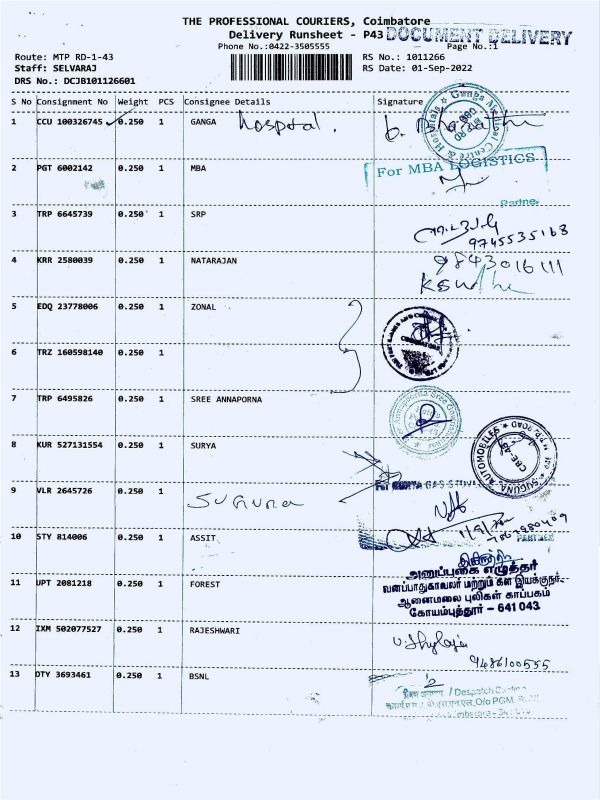 THE PROFESSIONAL COURIERS, Coimbatore
Delivery Runsheet - P43 DOCUMENT DELIVERY
Phone No.:0422-3505555 Page No.:1
Route: MTP RD-1-43 RS No.: 1011266
Staff: SELVARAJ RS Date: 01-Sep-2022
DRS No.: DCJB101126601
S No Consignment No Weight PCS Consignee Details Signature
1 CCU 100326745 0.250 1 GANGA hospital.
2 PGT 6002142 0.250 1 MBA For MBA LOGISTICS
Partner
3 TRP 6645739 0.250 1 SRP
9745535168
4 KRR 2580039 0.250 1 NATARAJAN 9843016111
5 EDQ 23778006 0.250 1 ZONAL
6 TRZ 160598140 0.250 1
7 TRP 6495826 0.250 1 SREE ANNAPORNA
8 KUR 527131554 0.250 1 SURYA SUGUNA AUTOMOBILES
9 VLR 2645726 0.250 1 Suguna
10 STY 814006 0.250 1 ASSIT PARTNER
அனுப்புகை எழுத்தர்
11 UPT 2081218 0.250 1 FOREST வனப்பாதுகாவலர் மற்றும் கள இயக்குநர்
ஆனைமலை புலிகள் காப்பகம்
கோயம்புத்தூர் - 641 043
12 IXM 502077527 0.250 1 RAJESHWARI
9486100555
13 DTY 3693461 0.250 1 BSNL
/ Despatch
O/o PGM,